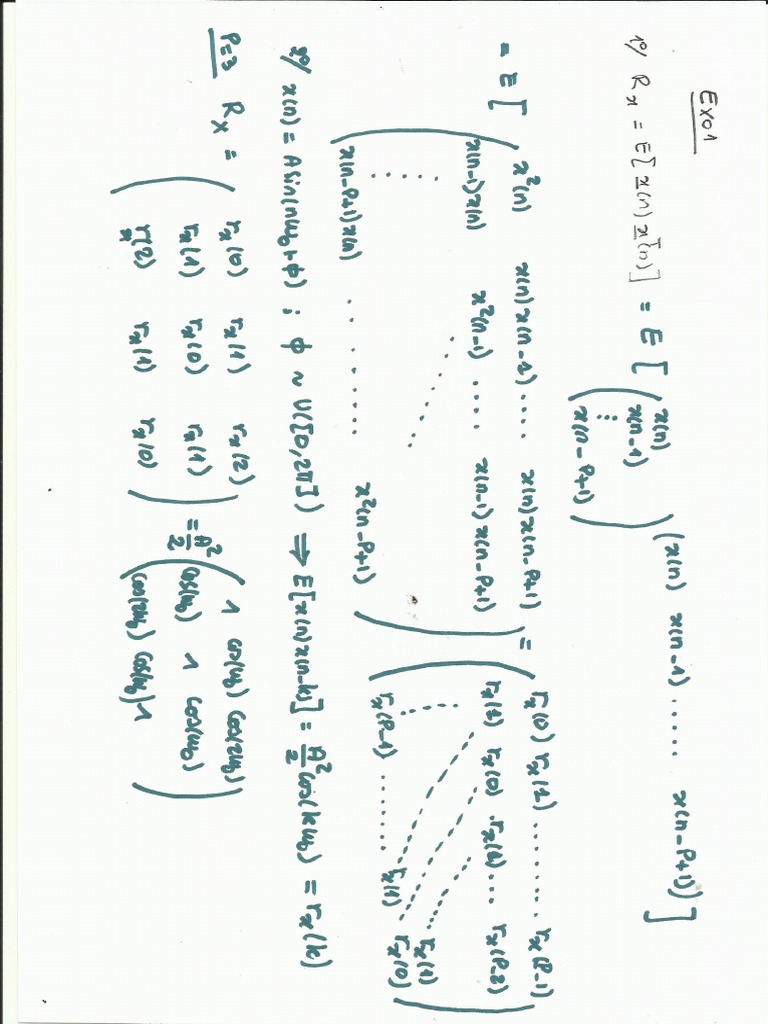 Exo1
1°/ R_x = E[x(n) x^T(n)] = E[ ( x(n) x(n-1) ⋮ x(n-P+1) ) (x(n) x(n-1) ...... x(n-P+1)) ]
= E [ ( x²(n) x(n)x(n-1) ..... x(n)x(n-P+1)
x(n-1)x(n) x²(n-1) ..... x(n-1)x(n-P+1)
x(n-P+1)x(n) ......... x²(n-P+1) )
= ( r_x(0) r_x(1) ......... r_x(P-1)
r_x(1) r_x(0) r_x(1) ... r_x(P-2)
r_x(1)
r_x(P-1) ....... r_x(1) r_x(0) )
2°/ x(n) = A sin(nω₀+φ) ; φ ~ U([0,2π]) ⇒ E[x(n)x(n-k)] = A²/2 cos(kω₀) = r_x(k)
P=3 R_x = ( r_x(0) r_x(1) r_x(2)
r_x(1) r_x(0) r_x(1)
r_x(2) r_x(1) r_x(0) )
= A²/2 ( 1 cos(ω₀) cos(2ω₀)
cos(ω₀) 1 cos(ω₀)
cos(2ω₀) cos(ω₀) 1 )